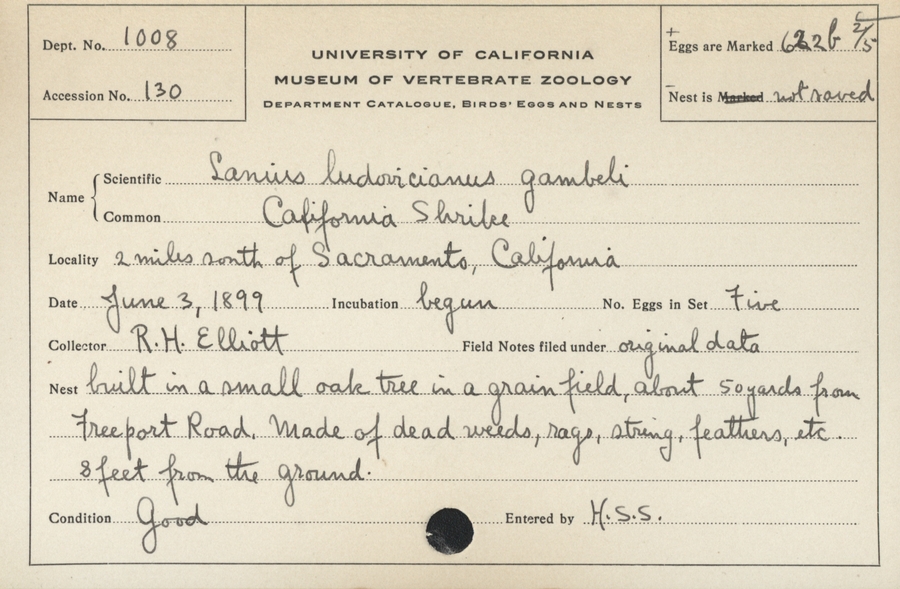 Dept. No. 1008
Accession No. 130
UNIVERSITY OF CALIFORNIA
MUSEUM OF VERTEBRATE ZOOLOGY
DEPARTMENT CATALOGUE, BIRDS' EGGS AND NESTS
Eggs are Marked 622b 2/5
Nest is Marked not saved
Name
Scientific Lanius ludovicianus gambeli
Common California Shrike
Locality 2 miles south of Sacramento, California
Date June 3, 1899 Incubation begun No. Eggs in Set Five
Collector R.H. Elliott Field Notes filed under original data
Nest built in a small oak tree in a grain field, about 50 yards from
Freeport Road. Made of dead weeds, rags, string, feathers, etc.
8 feet from the ground.
Condition Good Entered by H.S.S.